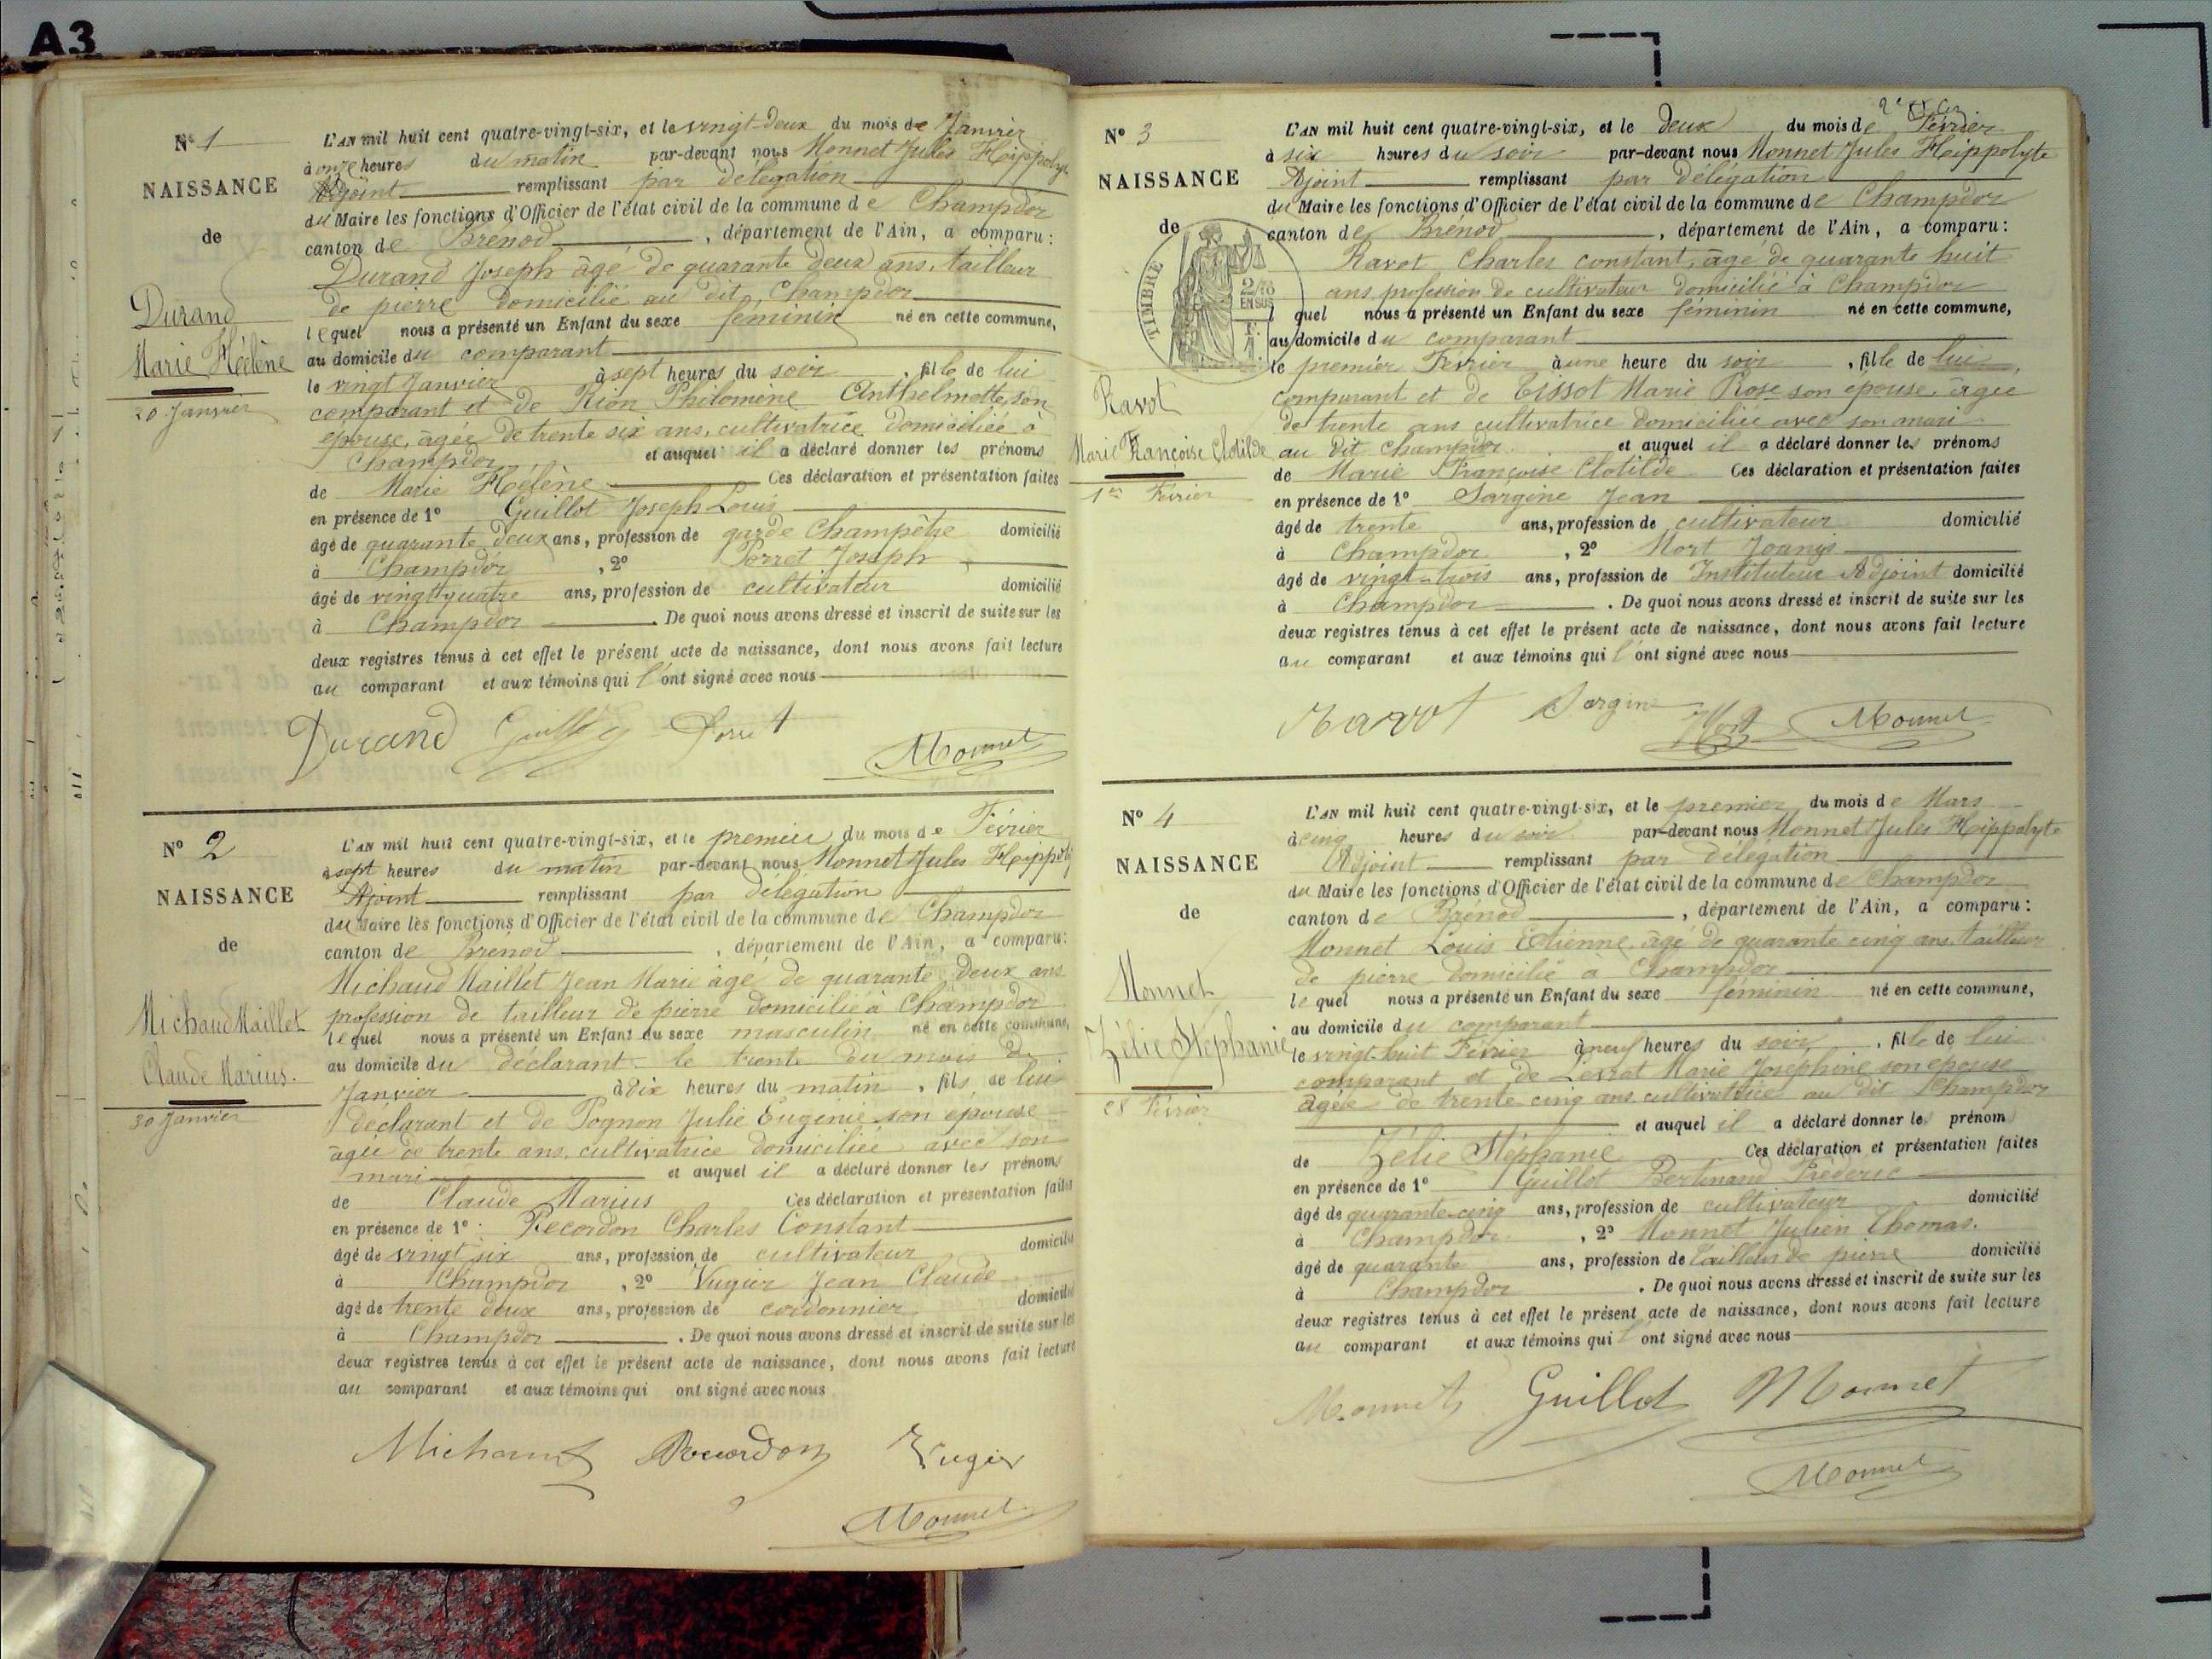 A3
N° 1
NAISSANCE
de
Durand
Marie Hélène
20 Janvier
L'AN mil huit cent quatre-vingt-six, et le vingt-deux du mois de Janvier
à onze heures du matin par-devant nous Monnet Jules Hippolyte
Adjoint remplissant par délégation
du Maire les fonctions d'Officier de l'état civil de la commune de Champdor
canton de Brénod, département de l'Ain, a comparu:
Durand Joseph âgé de quarante deux ans, tailleur
de pierre domicilié au dit Champdor
lequel nous a présenté un Enfant du sexe féminin né en cette commune,
au domicile du comparant
le vingt Janvier à sept heures du soir, fille de lui
comparant et de Rion Philomène Anthelmette son
épouse, âgée de trente six ans, cultivatrice domiciliée à
Champdor et auquel il a déclaré donner les prénoms
de Marie Hélène Ces déclaration et présentation faites
en présence de 1° Guillot Joseph Louis
âgé de quarante deux ans, profession de garde Champêtre domicilié
à Champdor, 2° Porret Joseph
âgé de vingt quatre ans, profession de cultivateur domicilié
à Champdor. De quoi nous avons dressé et inscrit de suite sur les
deux registres tenus à cet effet le présent acte de naissance, dont nous avons fait lecture
au comparant et aux témoins qui l'ont signé avec nous
Durand Guillot Porret
Monnet
N° 2
NAISSANCE
de
Michaud Maillet
Claude Marius.
30 Janvier
L'AN mil huit cent quatre-vingt-six, et le premier du mois de Février
à sept heures du matin par-devant nous Monnet Jules Hippoly
Ajoint remplissant par délégation
du Maire les fonctions d'Officier de l'état civil de la commune de Champdor
canton de Brénod, département de l'Ain, a comparu:
Michaud Maillet Jean Marie âgé de quarante deux ans
profession de tailleur de pierre domicilié à Champdor
lequel nous a présenté un Enfant du sexe masculin né en cette commune,
au domicile du déclarant le trente du mois de
Janvier à dix heures du matin, fils de lui
déclarant et de Pognon Julie Eugenie son épouse
agée de trente ans, cultivatrice domiciliée avec son
mari et auquel il a déclaré donner les prénoms
de Claude Marius Ces déclaration et présentation faites
en présence de 1° Recordon Charles Constant
âgé de vingt six ans, profession de cultivateur domicilié
à Champdor, 2° Vugier Jean Claude
âgé de trente deux ans, profession de cordonnier domicilié
à Champdor. De quoi nous avons dressé et inscrit de suite sur les
deux registres tenus à cet effet le présent acte de naissance, dont nous avons fait lecture
au comparant et aux témoins qui ont signé avec nous
Michaud Recordon Vugier
Monnet
N° 3
NAISSANCE
de
TIMBRE
2/10
EN SUS
Ravot
Marie Françoise Clotilde
1er Février
L'AN mil huit cent quatre-vingt-six, et le deux du mois de Février
à six heures du soir par-devant nous Monnet Jules Hippolyte
Ajoint remplissant par délégation
du Maire les fonctions d'Officier de l'état civil de la commune de Champdor
canton de Brénod, département de l'Ain, a comparu:
Ravot Charles constant, âgé de quarante huit
ans profession de cultivateur domicilié à Champdor
l quel nous a présenté un Enfant du sexe féminin né en cette commune,
au domicile du comparant
le premier Fevrier à une heure du soir, fille de lui,
comparant et de Tissot Marie Rose son épouse, âgée
de trente ans cultivatrice domiciliée avec son mari
au dit champdor et auquel il a déclaré donner les prénoms
de Marie Françoise Clotilde Ces déclaration et présentation faites
en présence de 1° Sargine Jean
âgé de trente ans, profession de cultivateur domicilié
à Champdor, 2° Mort Joanis
âgé de vingt-trois ans, profession de Instituteur Adjoint domicilié
à Champdor. De quoi nous avons dressé et inscrit de suite sur les
deux registres tenus à cet effet le présent acte de naissance, dont nous avons fait lecture
au comparant et aux témoins qui l'ont signé avec nous
Ravot Sargine Mort Monnet
N° 4
NAISSANCE
de
Monnet
Zélie Stéphanie
28 Février
L'AN mil huit cent quatre-vingt-six, et le premier du mois de Mars
à cinq heures du soir par-devant nous Monnet Jules Hippolyte
Adjoint remplissant par délégation
du Maire les fonctions d'Officier de l'état civil de la commune de Champdor
canton de Brénod, département de l'Ain, a comparu:
Monnet Louis Etienne, âgé de quarante cinq ans, tailleur
de pierre domicilié à Champdor
lequel nous a présenté un Enfant du sexe féminin né en cette commune,
au domicile du comparant
le vingt-huit Février à neuf heures du soir, fille de lui
comparant et de Levrat Marie Josephine son épouse
âgée de trente cinq ans cultivatrice au dit Champdor
et auquel il a déclaré donner les prénom
de Zélie Stéphanie Ces déclaration et présentation faites
en présence de 1° Guillot Bertinand Frederic
âgé de quarante-cinq ans, profession de cultivateur domicilié
à Champdor, 2° Monnet Julien Thomas.
âgé de quarante ans, profession de tailleur de pierre domicilié
à Champdor. De quoi nous avons dressé et inscrit de suite sur les
deux registres tenus à cet effet le présent acte de naissance, dont nous avons fait lecture
au comparant et aux témoins qui l'ont signé avec nous
Monnet Guillot Monnet
Monnet